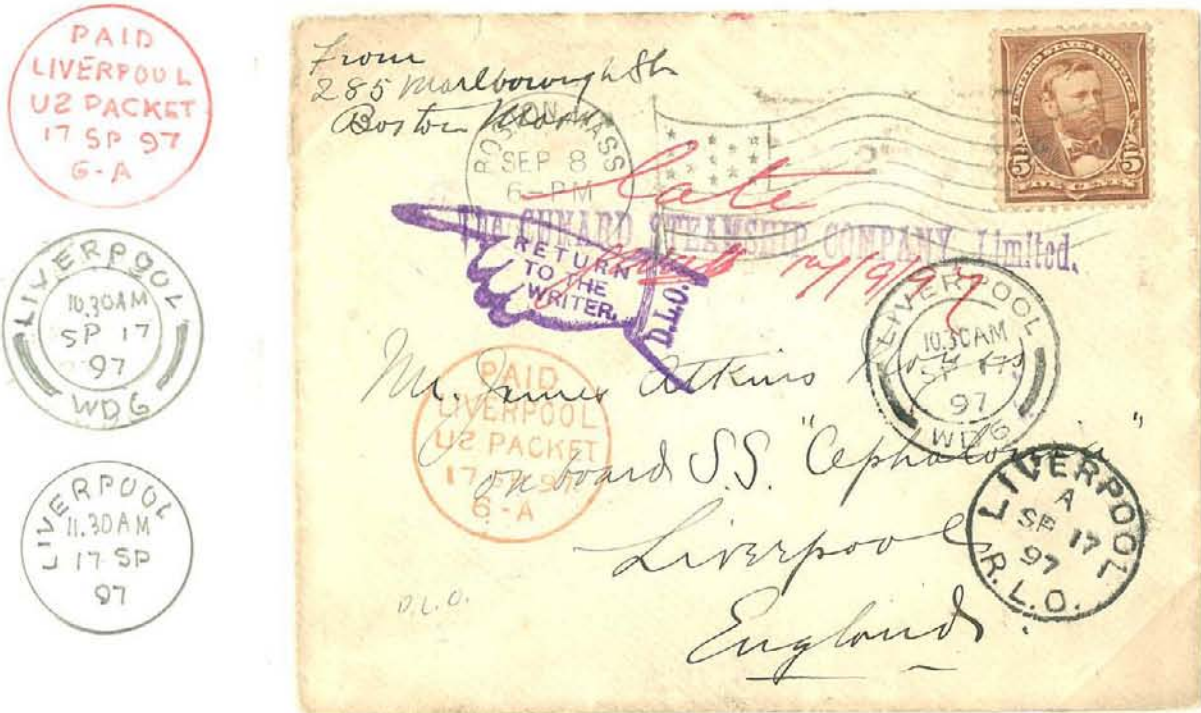 PAID
LIVERPOOL
U2 PACKET
17 SP 97
6-A
LIVERPOOL
10.30AM
SP 17
97
WDG
LIVERPOOL
11.30AM
17 SP
97
From
285 Marlborough St
Boston Mass
BOSTON, MASS
SEP 8
6-PM
UNITED STATES POSTAGE
5 5
Late
The CUNARD STEAMSHIP COMPANY, Limited.
17/9/97
RETURN
TO THE
WRITER.
D.L.O.
LIVERPOOL
10.30AM
SP 17
97
WDG
Mr. James Atkins
PAID
LIVERPOOL
U2 PACKET
17 SP 97
6-A
on board S.S. "Cephalonia"
Liverpool
England
LIVERPOOL
A
SP 17
97
R.L.O.
D.L.O.